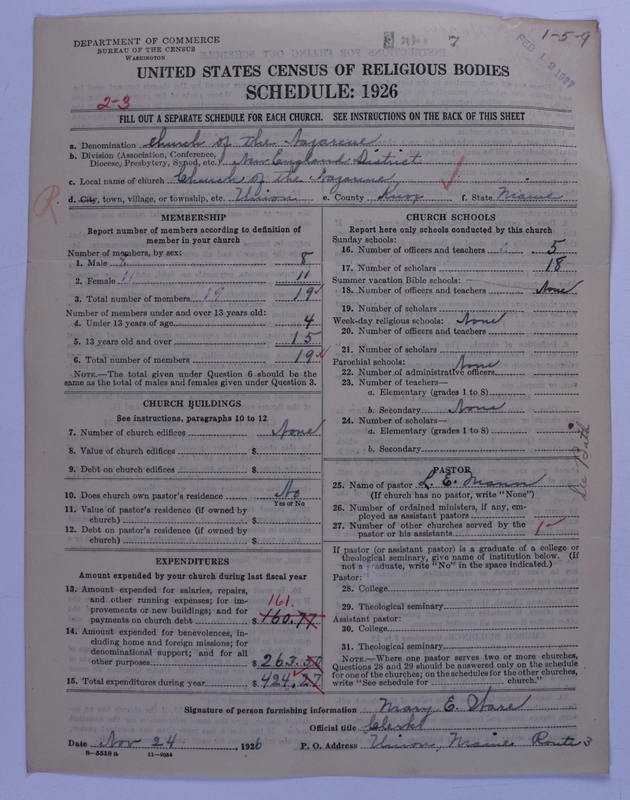 DEPARTMENT OF COMMERCE
BUREAU OF THE CENSUS
WASHINGTON
7
1-5-9
FEB 12 1927
UNITED STATES CENSUS OF RELIGIOUS BODIES
SCHEDULE: 1926
2-3
FILL OUT A SEPARATE SCHEDULE FOR EACH CHURCH. SEE INSTRUCTIONS ON THE BACK OF THIS SHEET
a. Denomination Church of the Nazarene
b. Division (Association, Conference, Diocese, Presbytery, Synod, etc.) New England District
c. Local name of church Church of the Nazarene
d. City, town, village, or township, etc. Union e. County Knox f. State Maine
R
MEMBERSHIP
Report number of members according to definition of
member in your church
Number of members, by sex:
1. Male 8 8
2. Female 11 11
3. Total number of members 19 19
Number of members under and over 13 years old:
4. Under 13 years of age 4
5. 13 years old and over 15
6. Total number of members 19
NOTE.—The total given under Question 6 should be the
same as the total of males and females given under Question 3.
CHURCH BUILDINGS
See instructions, paragraphs 10 to 12
7. Number of church edifices None
8. Value of church edifices $
9. Debt on church edifices $
10. Does church own pastor's residence No
Yes or No
11. Value of pastor's residence (if owned by
church) $
12. Debt on pastor's residence (if owned by
church) $
EXPENDITURES
Amount expended by your church during last fiscal year
13. Amount expended for salaries, repairs,
and other running expenses; for im-
provements or new buildings; and for
payments on church debt $ 160.77
161.
14. Amount expended for benevolences, in-
cluding home and foreign missions; for
denominational support; and for all
other purposes $ 263.50
15. Total expenditures during year $ 424.27
CHURCH SCHOOLS
Report here only schools conducted by this church
Sunday schools:
16. Number of officers and teachers 5
17. Number of scholars 18
Summer vacation Bible schools:
18. Number of officers and teachers None
19. Number of scholars
Week-day religious schools: None
20. Number of officers and teachers
21. Number of scholars
Parochial schools: None
22. Number of administrative officers
23. Number of teachers—
a. Elementary (grades 1 to 8)
b. Secondary None
24. Number of scholars—
a. Elementary (grades 1 to 8)
b. Secondary
See Bath
PASTOR
25. Name of pastor L. E. Mann
(If church has no pastor, write "None")
26. Number of ordained ministers, if any, em-
ployed as assistant pastors
27. Number of other churches served by the
pastor or his assistants 1
If pastor (or assistant pastor) is a graduate of a college or
theological seminary, give name of institution below. (If
not a graduate, write "No" in the space indicated.)
Pastor:
28. College
29. Theological seminary
Assistant pastor:
30. College
31. Theological seminary
NOTE.—Where one pastor serves two or more churches,
Questions 28 and 29 should be answered only on the schedule
for one of the churches; on the schedules for the other churches,
write "See schedule for church."
Signature of person furnishing information Mary E. Ware
Official title Clerk
Date Nov 24, 1926 P. O. Address Union, Maine Route 3
8-5518 a 11-9034